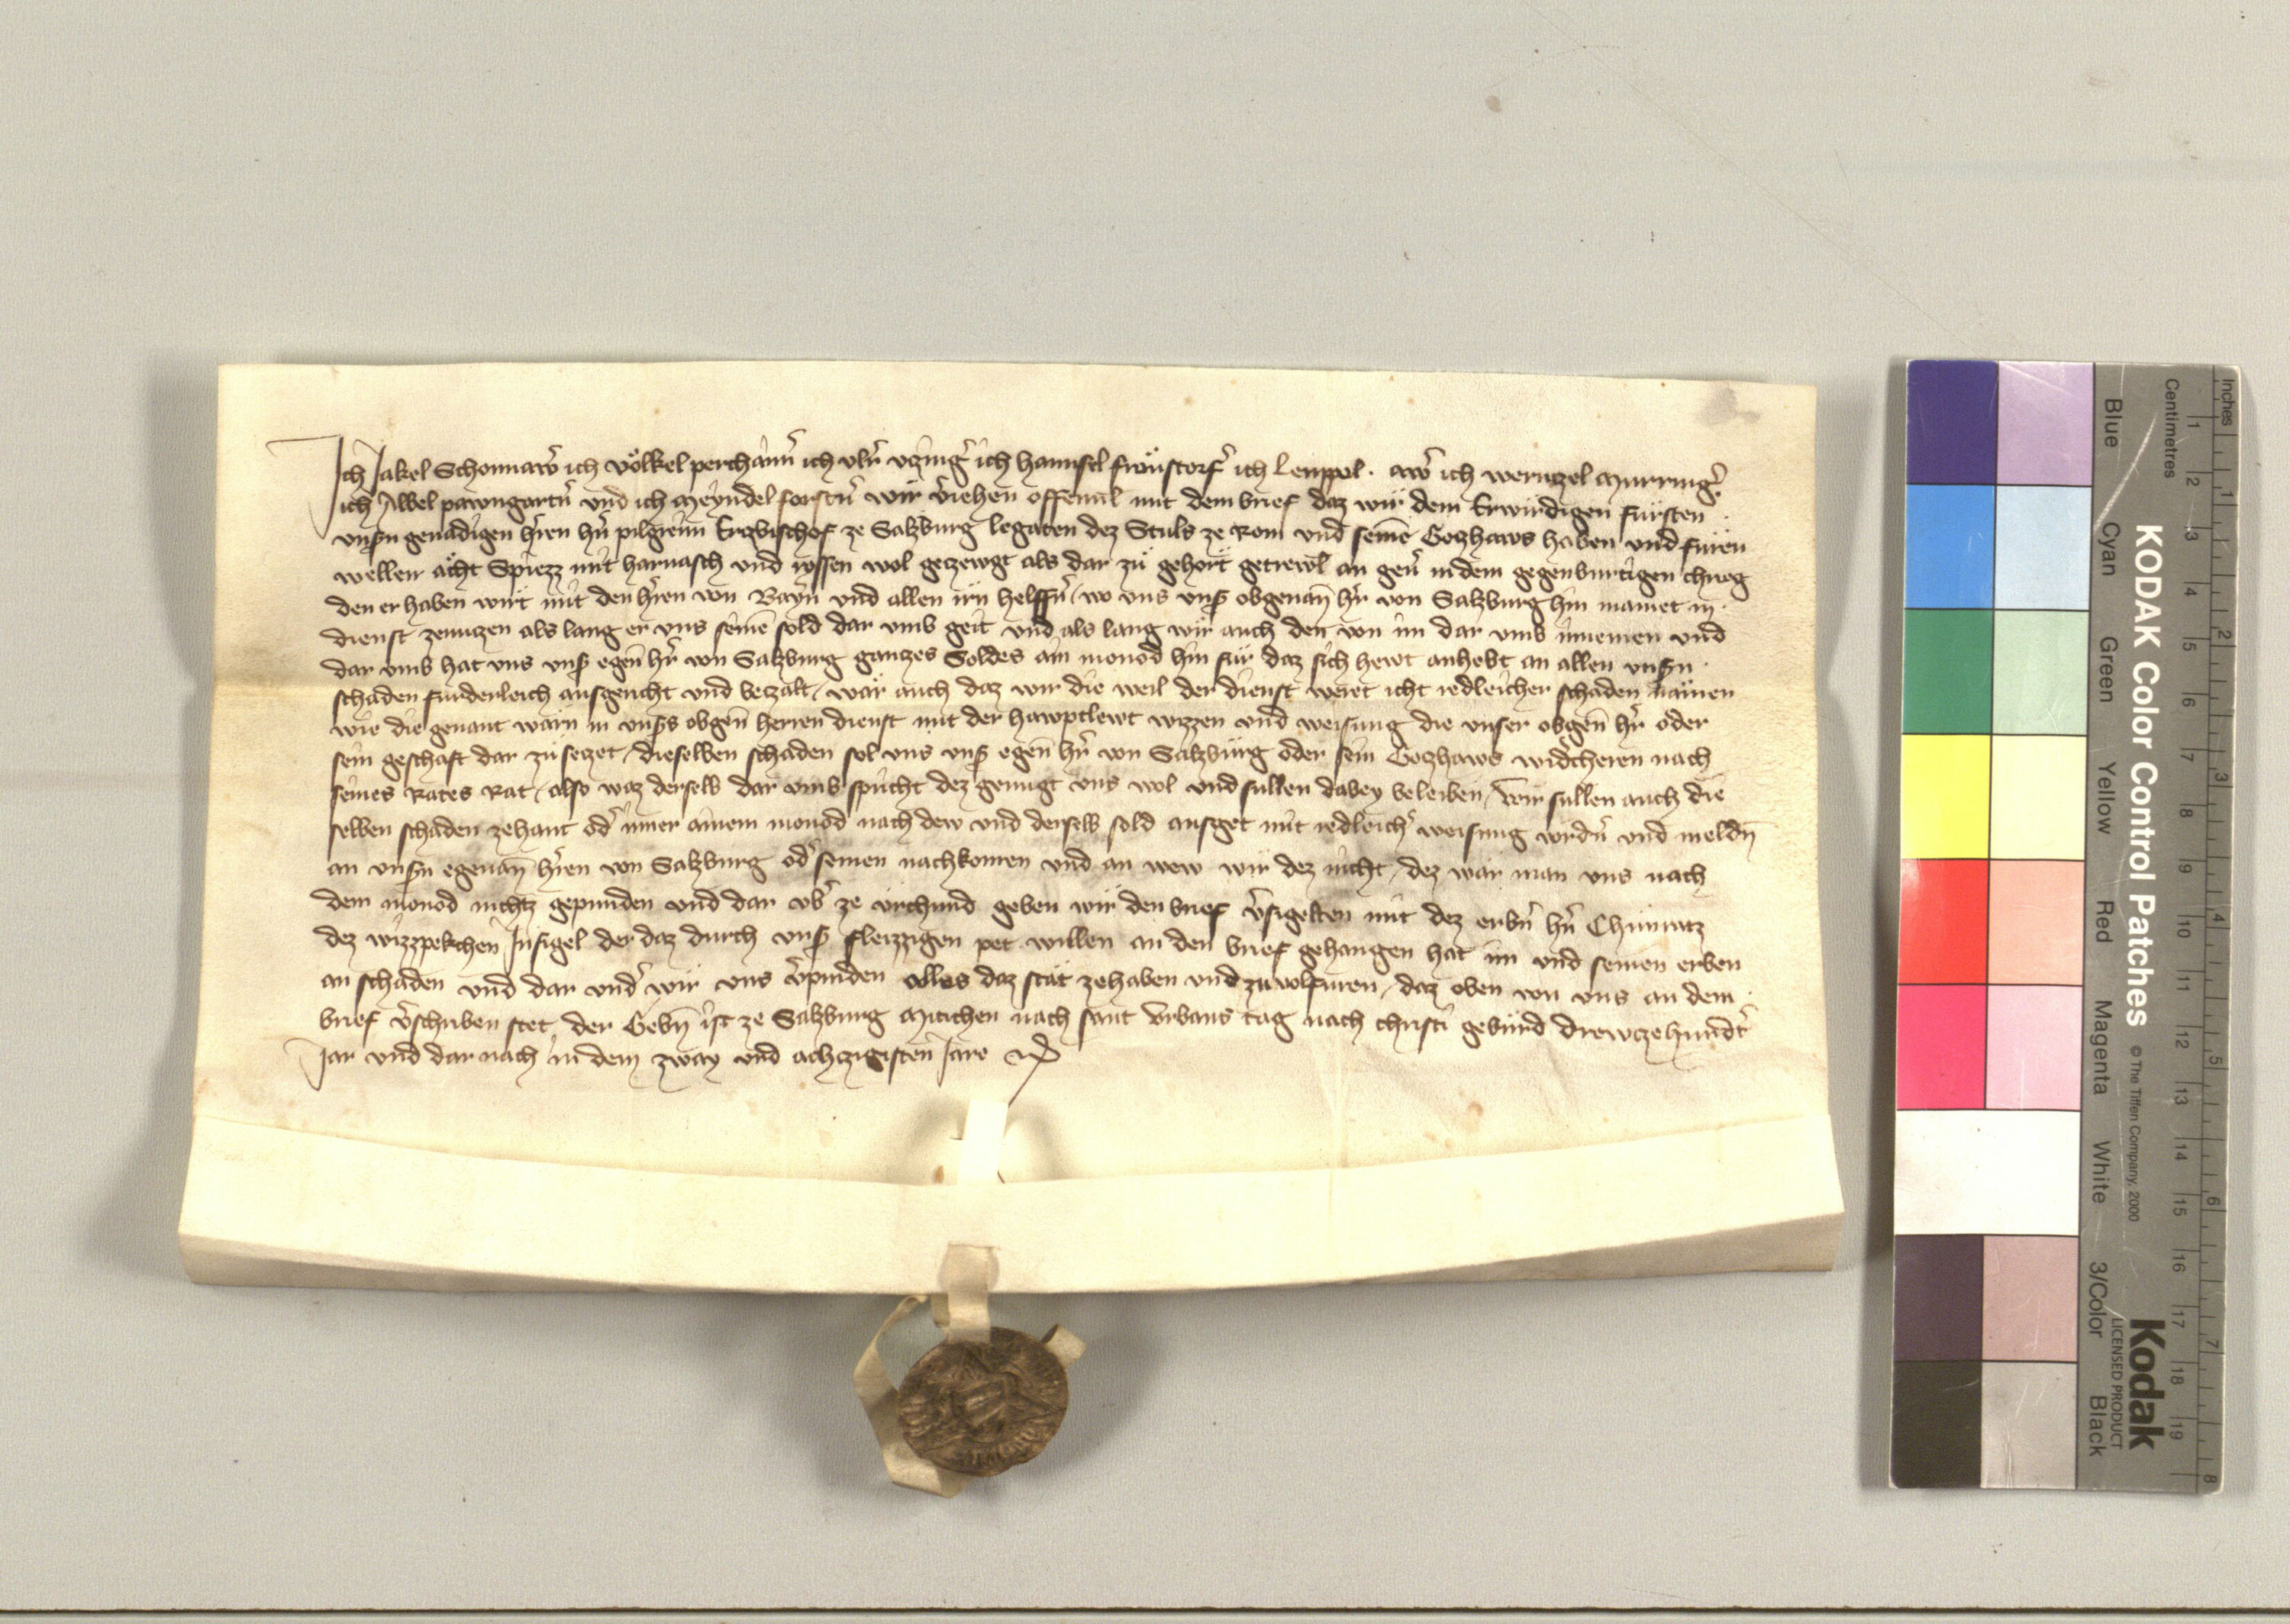 Ich Jakel Schonnawˀ ich Völkel perchaimˀ ich Ulrˀ Utzingˀ ich Hannsel frönstorfˀ ich Lenppol . awˀ ich werntzel Murringˀ
ich Albel pawngartnˀ und ich Meyndel forstnˀ wir vˀiehen offenlich mit dem brief daz wir dem Erwirdigen fürsten
unsˀn genädigen hˀren hˀn pilgreim Ertzbischof ze Saltzburg legaten dez Stuls ze Rom und seinē Gotzhaws haben und füren
wellen acht Spiezz mit harnasch und rossen wol getzewgt als dar zü gehört getrewl an gevˀ in dem gegenburtigen chrieg
den er haben wirt mit den hˀren von Bayrn und allen irn helffˀn / wo uns unsˀ obgenan̄ hˀr von Saltzburg hin manet in
dienst ze nutzen als lang er uns seinē sold dar umb geit und als lang wir auch den von im dar umb innemen und
dar umb hat uns unsˀ egen̄ hˀr von Saltzburg gantzes Soldes ain monod hin für daz sich hewt anhebt an allen unsˀn
schaden furderleich ausgericht und betzalt / wär auch daz wir die weil der dienst weret icht redleicher schaden nämen
wie die genant wärn in unsˀs obgen̄ herren dienst mit der hawptlewt wizzen und weisung die unser obgen̄ hˀr oder
sein geschäft dar zü setzet / dieselben schaden sol uns unsˀ egen̄ hˀr von Saltzburg oder sein Gotzhaws widˀcheren nach
seines Rates Rat / also waz derselb dar umb spricht dez genugt uns wol und sullen dabey beleiben / Wir sullen auch die
selben schaden zehant odˀ inner ainem monod nach dew und derselb sold ausget mit redleichˀ weisung vordˀn und meldn̄
an unsˀn egenan̄ hˀren von Saltzburg odˀ seinen nachkomen und an wew wir dez nicht / dez wär man uns nach
dem monod nichtz gepunden und dar ubˀ ze urchund geben wir den brief vˀsigelten mit dez erbˀn hˀn Chunratz
dez wizzpekchen Insigel der daz durch unsˀ fleizzigen pet willen an den brief gehangen hat im und seinen erben
an schaden und dar undˀ wir uns vˀpinden alles daz stät zehaben und zu volfüren / daz oben von uns an dem
brief vˀschriben stet / der Gebn̄ ist ze Saltzburg Mitichen nach sant Urbans tag nach christi gebürd drewtzehundˀt
Jar und dar nach in dem zway und achtzigisten Jare
KODAK Color Control Patches
© The Tiffen Company, 2000
Kodak
LICENSED PRODUCT
Inches 1 2 3 4 5 6 7 8
Centimetres 1 2 3 4 5 6 7 8 9 10 11 12 13 14 15 16 17 18 19
Blue Cyan Green Yellow Red Magenta White 3/Color Black